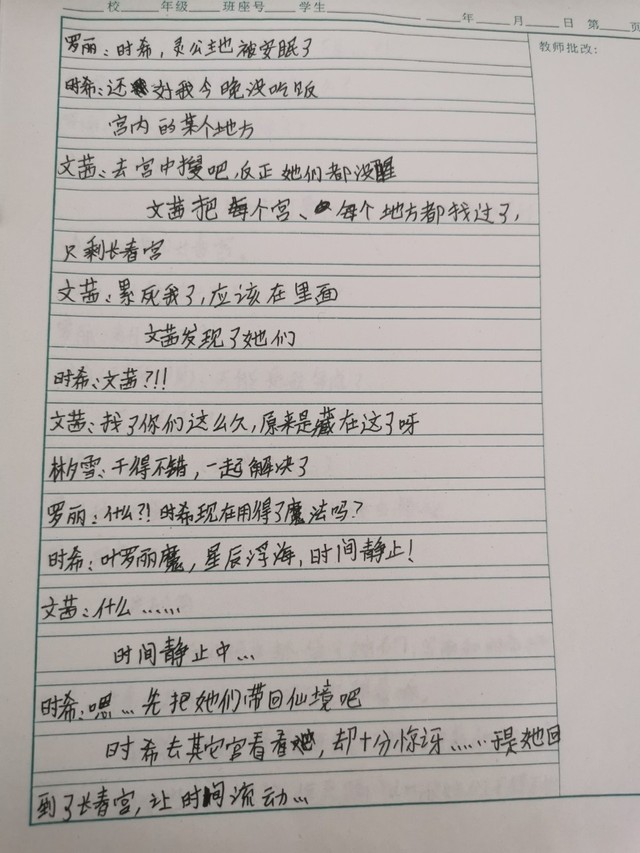 校 年级 班座号 学生 年 月 日 第 页
教师批改:
罗丽:时希,灵公主也被安眠了
时希:还好我今晚没吃饭
宫内的某个地方
文茜:去宫中搜吧,反正她们都没醒
文茜把每个宫、每个地方都找过了,
只剩长春宫
文茜:累死我了,应该在里面
文茜发现了她们
时希:文茜?!!
文茜:找了你们这么久,原来是藏在这了呀
林夕雪:干得不错,一起解决了
罗丽:什么?!时希现在用得了魔法吗?
时希:叶罗丽魔,星辰浮海,时间静止!
文茜:什么……
时间静止中…
时希:嗯…先把她们带回仙境吧
时希去其它宫看看,却十分惊讶……于是她回
到了长春宫,让时间流动…